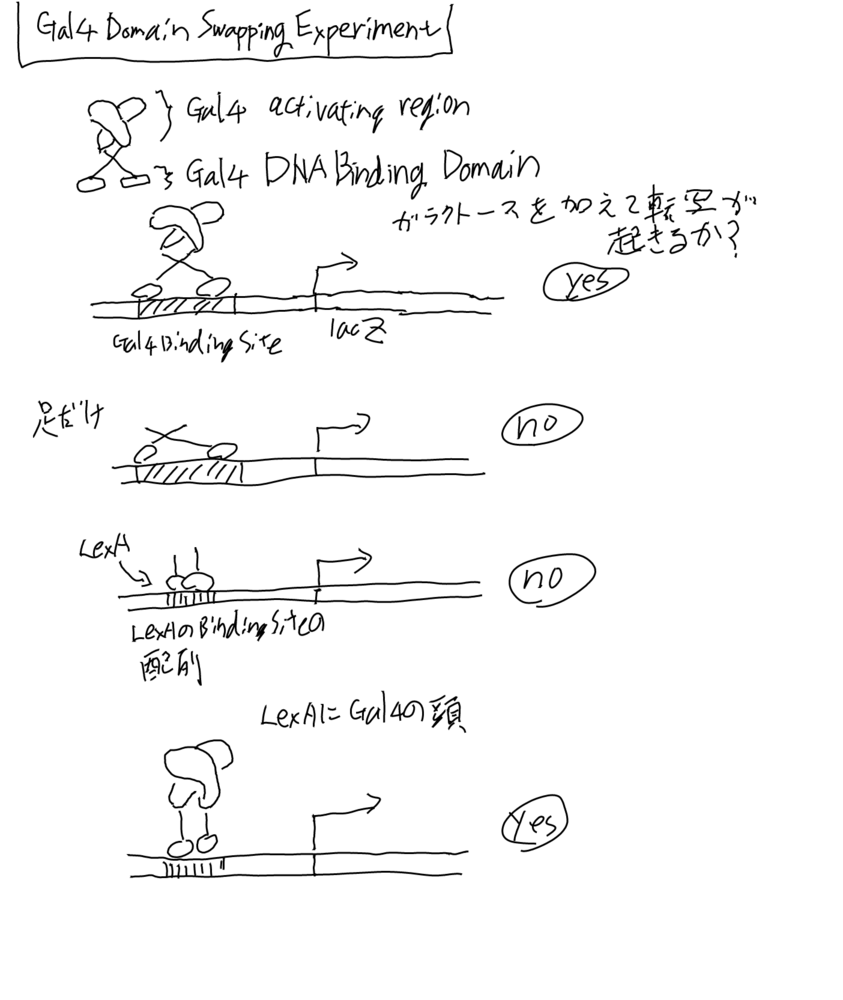 Gal4 Domain Swapping Experiment
Gal4 activating region
Gal4 DNA Binding Domain
ガラクトースを加えて転写が
起きるか?
yes
Gal4 Binding Site
lacZ
足だけ
no
LexA
no
LexAのBinding Siteの
配列
LexAに Gal4の頭
yes